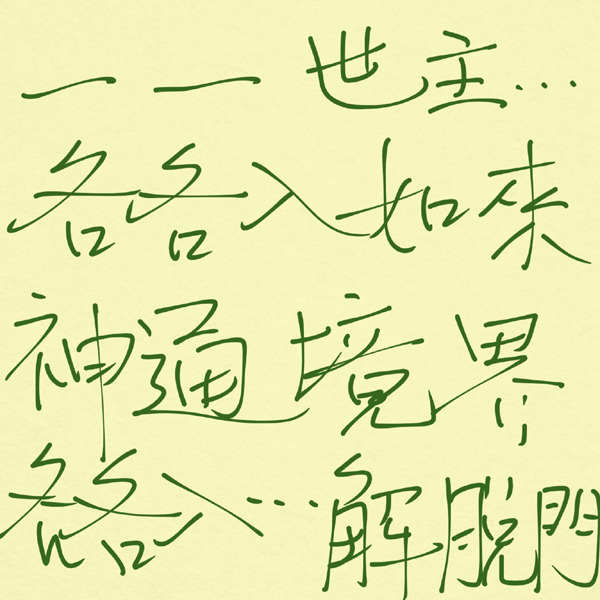 一一世主…
各各入如來
神通境界
各各入…解脫門